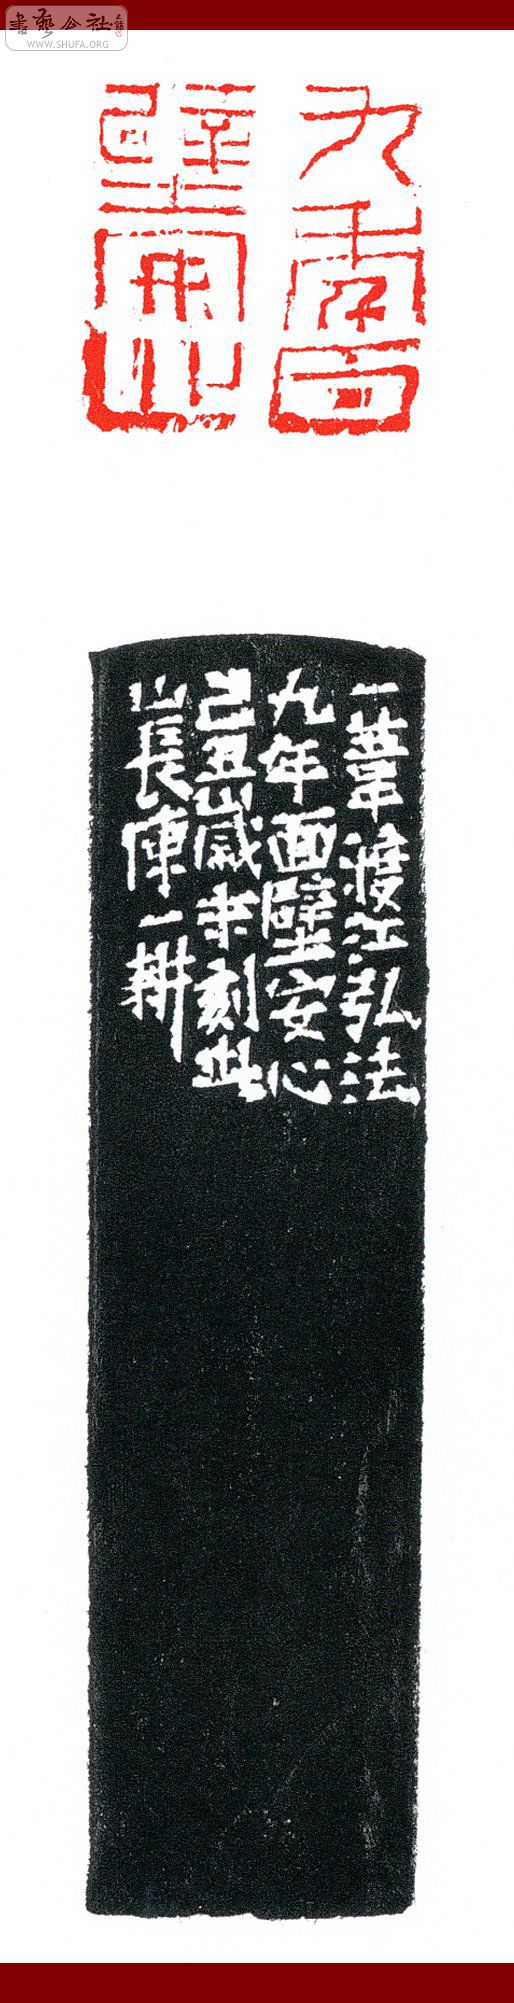 書藝公社
WWW.SHUFA.ORG
九年面
壁
一葦渡江弘法
九年面壁安心
己丑歲末刻此
長庫一耕